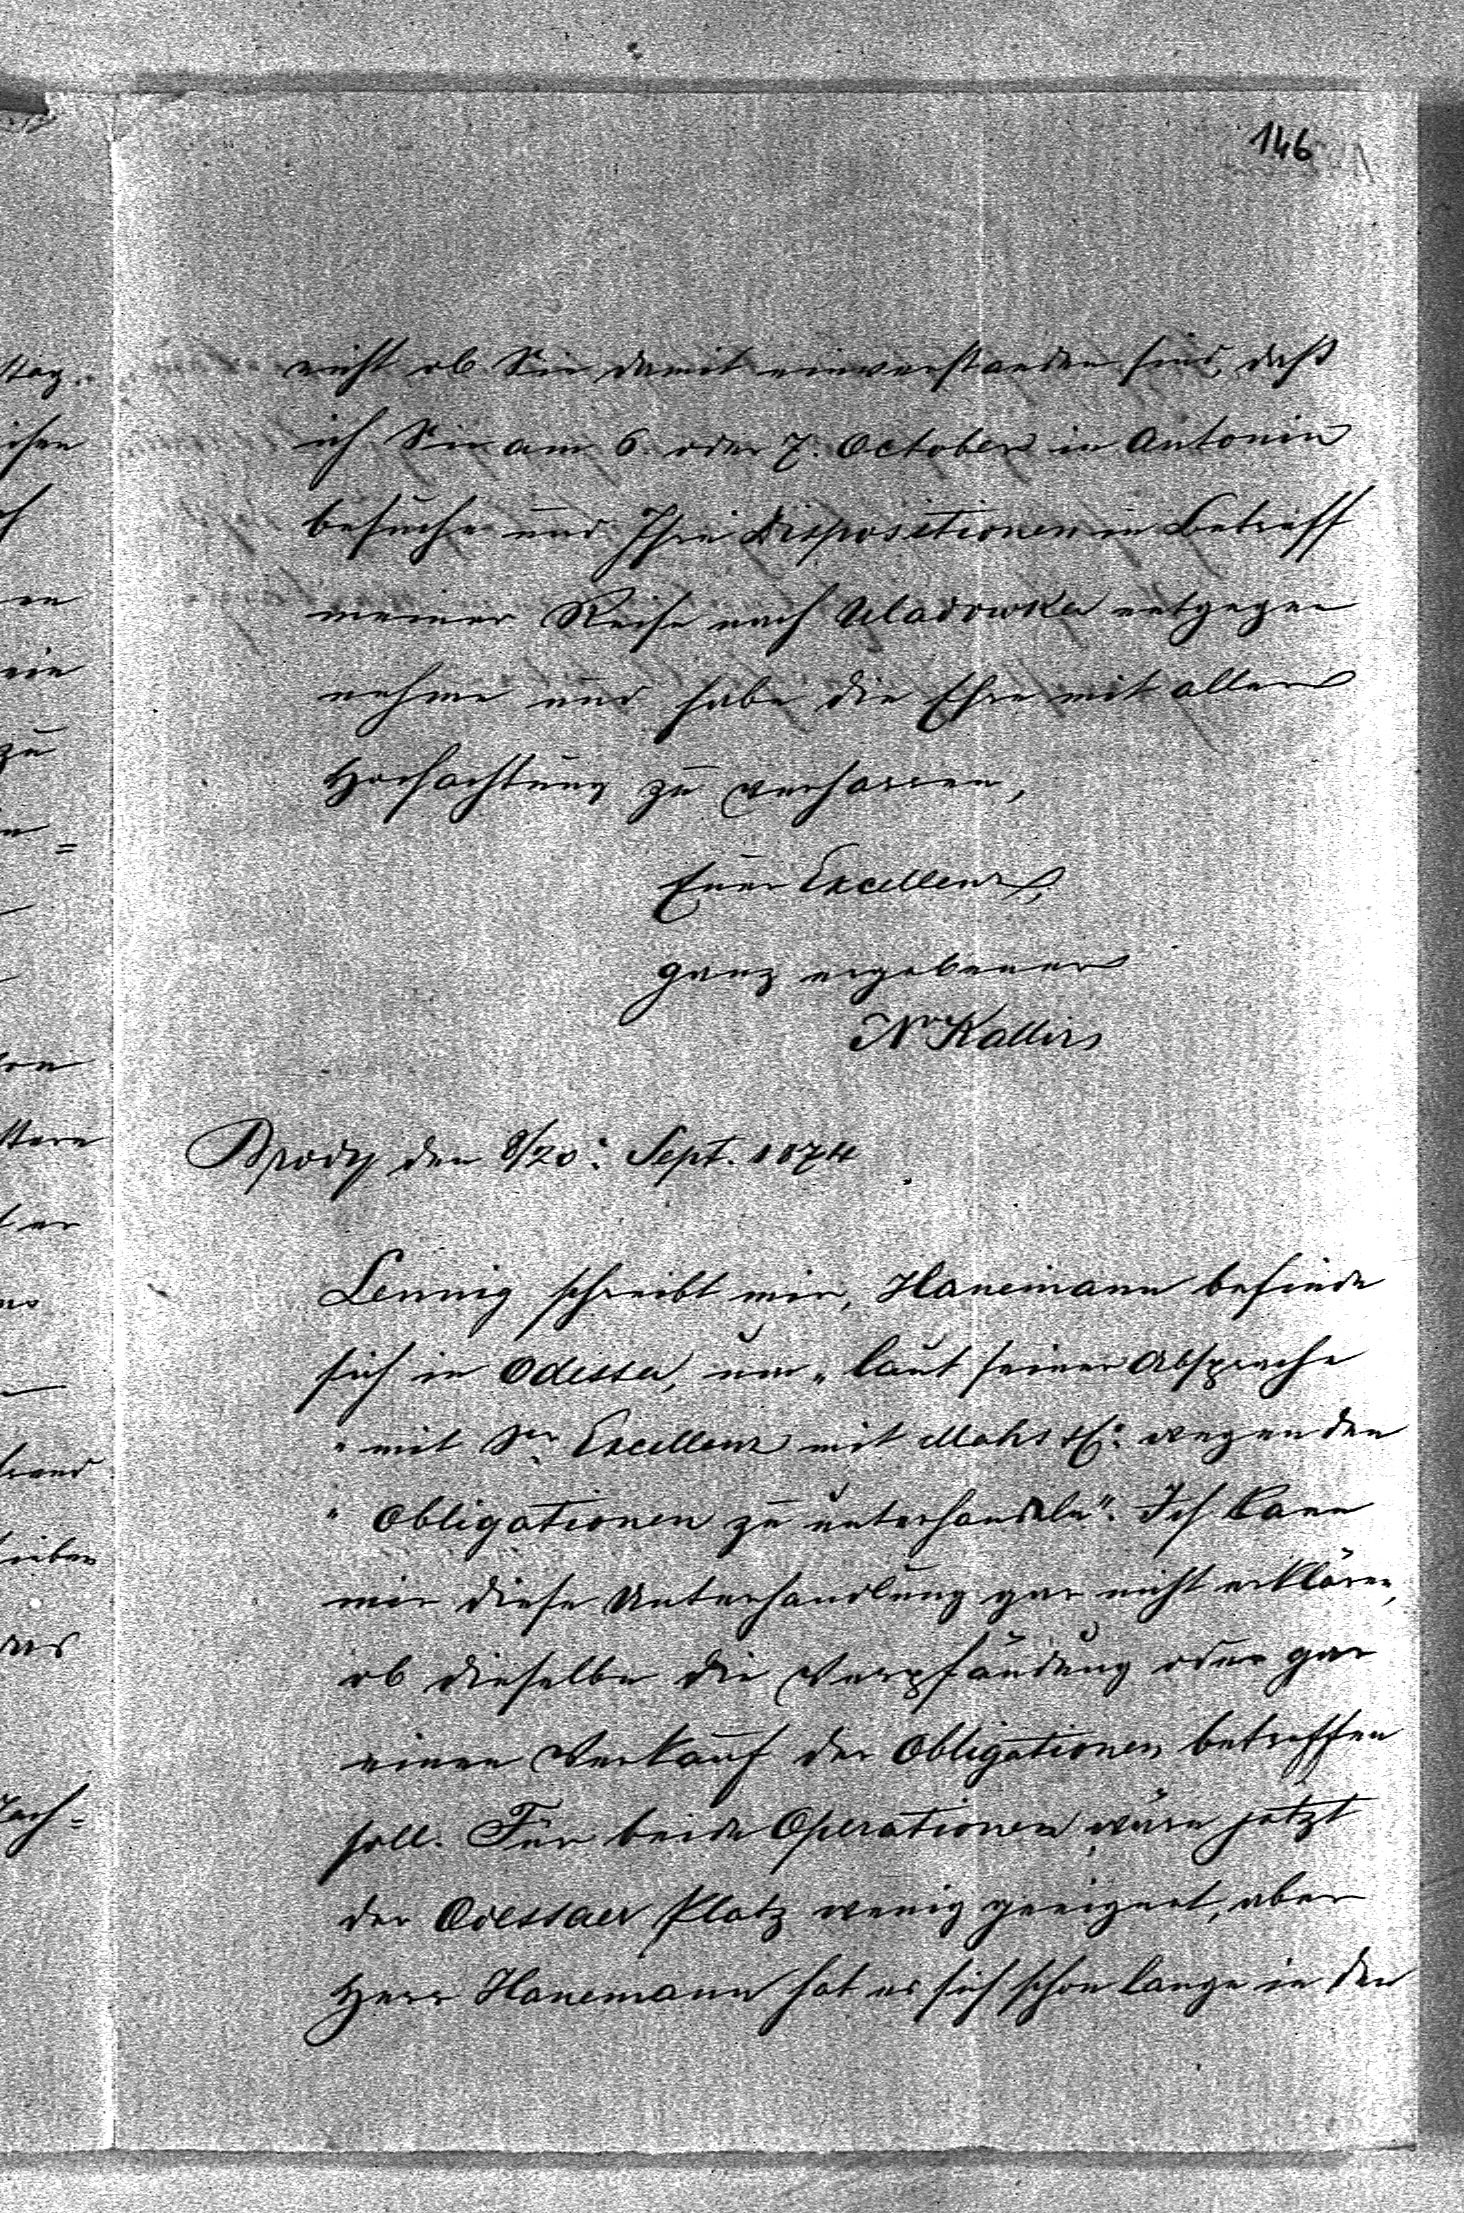 146
nicht ob Sie damit einverstanden sind, daß
ich Sie am 6. oder 7. October in Antonin
besuche und Ihre Dispositionen in Betreff
meiner Reise nach Uladowka entgegen
nehme und habe die Ehre mit aller
Hochachtung zu verharren,
Euer Excellenz
ganz ergebener
Nr Kallir
Brody den 8/20. Sept. 1874
Lennig schreibt mir, Hanemann befinde
sich in Odessa, um „laut seiner Absprache
„mit Sr Excellenz mit Mahs & C: wegen den
„Obligationen zu unterhandeln“. Ich kann
mir diese Unterhandlung gar nicht erklären,
ob dieselbe die Verpfändung oder gar
einen Verkauf der Obligationen betreffen
soll. Für beide Operationen wäre jetzt
der Odessaer Platz wenig geeignet, aber
Herr Hanemann hat es sich schon lange in den